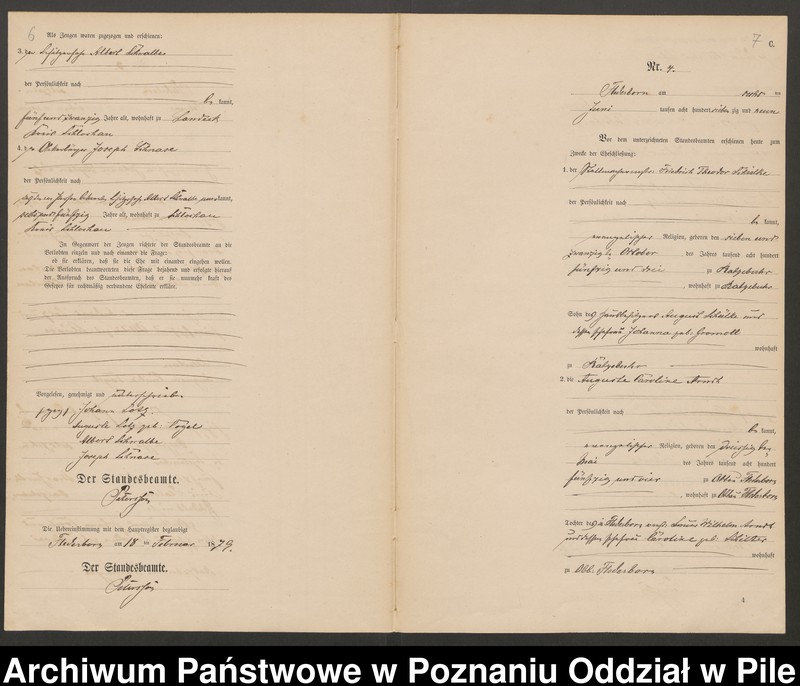 6
Als Zeugen waren zugezogen und erschienen:
3. der Albert Schwalbe
der Persönlichkeit nach
be kannt,
fünfundzwanzig Jahre alt, wohnhaft zu Landeck
Kreis Schlochau
4. der Joseph Schnase
der Persönlichkeit nach
Jahre alt, wohnhaft zu Schlochau
Kreis Schlochau
In Gegenwart der Zeugen richtete der Standesbeamte an die
Verlobten einzeln und nach einander die Frage:
ob sie erklären, daß sie die Ehe mit einander eingehen wollen.
Die Verlobten beantworteten diese Frage bejahend und erfolgte hierauf
der Ausspruch des Standesbeamten, daß er sie nunmehr kraft des
Gesetzes für rechtmäßig verbundene Eheleute erkläre.
Vorgelesen, genehmigt und unterschrieben
(gez) Johann Lotz
Auguste Lotz geb. Vogel
Albert Schwalbe
Joseph Schnase
Der Standesbeamte.
Die Uebereinstimmung mit dem Hauptregister beglaubigt
Flederborn am 18 ten Februar 1879.
Der Standesbeamte.
7 C.
Nr. 4.
Flederborn am sechs ten
Juni tausend acht hundert sieben zig und neun
Vor dem unterzeichneten Standesbeamten erschienen heute zum
Zwecke der Eheschließung:
1. der Friedrich Theodor Schülke
der Persönlichkeit nach
be kannt,
evangelischer Religion, geboren den sieben und
zwanzigten October des Jahres tausend acht hundert
fünfzig und drei zu Ratzebuhr
, wohnhaft zu Ratzebuhr
Sohn des August Schülke und
dessen Ehefrau Johanna geb. Gramoll
wohnhaft
zu Ratzebuhr
2. die Auguste Caroline Arndt
der Persönlichkeit nach
be kannt,
evangelischer Religion, geboren den
Mai des Jahres tausend acht hundert
fünfzig und vier zu Abbau Flederborn
, wohnhaft zu Abbau Flederborn
Tochter des in Flederborn Wilhelm Arndt
und dessen Ehefrau Caroline geb.
wohnhaft
zu Abb. Flederborn
Archiwum Państwowe w Poznaniu Oddział w Pile